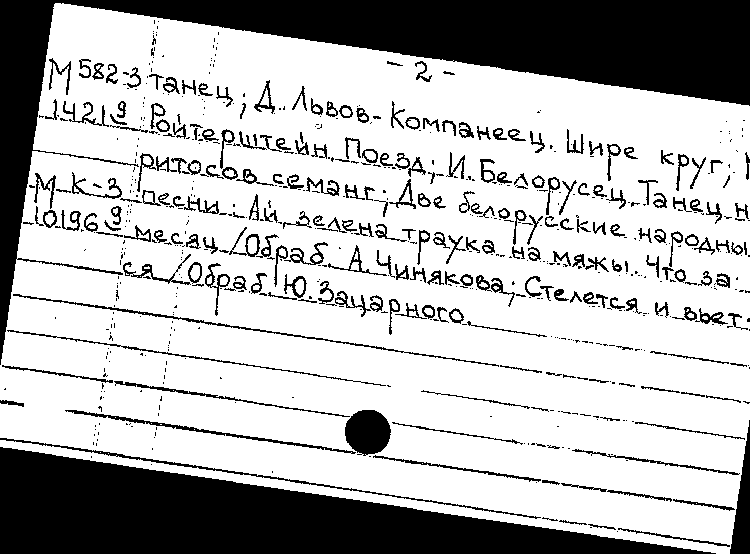 - 2 -
М 582-3 танец; Д. Львов-Компанеец. Шире круг;
1421 9 Ройтерштейн. Поезд; И. Белорусец. Танец н
ритосов семанг; Две белорусские народны
М К-3 песни: Ай, зелена траука на мяжы. Что за
10196 9 месяц /Обраб. А. Чинякова; Стелется и вьет-
ся /Обраб. Ю. Зацарного.